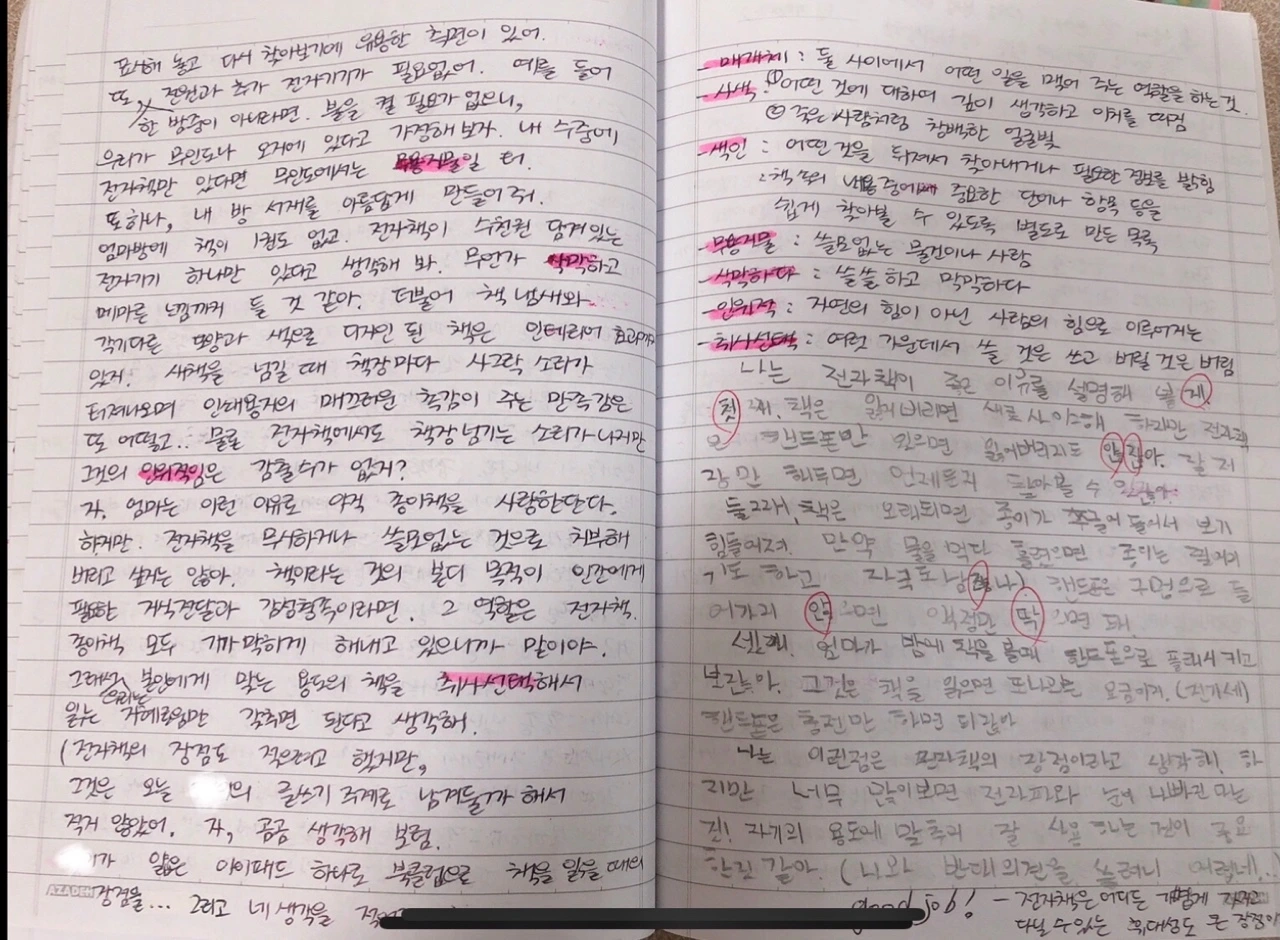 표해 놓고 다시 찾아보기에 유용한 측면이 있어.
또, 전원과 추가 전자기기가 필요없어. 예를 들어
한 밤중이 아니라면. 불을 켤 필요가 없으니,
우리가 무인도나 오지에 있다고 가정해보자. 내 수중에
전자책만 있다면 무인도에서는 무용지물일 터.
또하나, 내 방 서재를 아름답게 만들어줘.
엄마방에 책이 1권도 없고. 전자책이 수천권 담겨있는
전자기기 하나만 있다고 생각해 봐. 무언가 삭막하고
메마른 느낌까지 들 것 같아. 더불어 책 냄새와
각기다른 모양과 색으로 디자인 된 책은 인테리어 효과까지
있지. 새책을 넘길 때 책장마다 사그락 소리가
터져나오며 인쇄용지의 매끄러운 촉감이 주는 만족감은
또 어떻고.. 물론 전자책에서도 책장 넘기는 소리가 나지만
그것의 인위적임은 감출수가 없지?
자. 엄마는 이런 이유로 여적 종이책을 사랑한단다.
하지만. 전자책을 무시하거나 쓸모없는 것으로 치부해
버리고 싶지는 않아. 책이라는 것의 본디 목적이 인간에게
필요한 지식전달과 감성충족이라면. 그 역할은 전자책.
종이책 모두 기가막히게 해내고 있으니까 말이야.
그래서 본인에게 맞는 용도의 책을 취사선택해서
우리는
읽는 지혜로움만 갖추면 된다고 생각해.
(전자책의 장점도 적으려고 했지만,
그것은 오늘 의 글쓰기 주제로 남겨둘까 해서
적지 않았어. 자, 곰곰 생각해 보렴.
가 얇은 아이패드 하나로 북클럽으로 책을 읽을 때의
AZADEH
장점을... 그리고 네 생각을
- 매개체 : 둘 사이에서 어떤 일을 맺어 주는 역할을 하는 것.
- 사색 : ① 어떤 것에 대하여 깊이 생각하고 이치를 따짐
② 죽은 사람처럼 창백한 얼굴빛
- 색인 : 어떤 것을 뒤져서 찾아내거나 필요한 정보를 밝힘
: 책 속의 내용 중에서 중요한 단어나 항목 등을
쉽게 찾아볼 수 있도록 별도로 만든 목록
- 무용지물 : 쓸모없는 물건이나 사람
- 삭막하다 : 쓸쓸하고 막막하다
- 인위적 : 자연의 힘이 아닌 사람의 힘으로 이루어지는
- 취사선택 : 여럿 가운데서 쓸 것은 쓰고 버릴 것은 버림
나는 전자책이 좋은 이유를 설명해 볼게.
첫째, 책은 잃어버리면 새로 사야해 하지만 전자책
은 핸드폰만 있으면 잃어버리지도 않잖아. 잘 저
장만 해두면 언제든지 찾아볼 수 있잖아.
둘째, 책은 오래되면 종이가 쭈글어 들어서 보기
힘들어져. 만약 물을 먹다 흘렸으면 종이는 찢어지
기도 하고 자국도 남 나) 핸드폰은 구멍으로 들
어가지 않으면 액정만 닦으면 돼.
셋째. 엄마가 밤에 책을 볼때 핸드폰으로 플래시 키고
보잖아. 그것은 책을 읽으면 또나온는 요금이지. (전기세)
핸드폰은 충전만 하면 되잖아
나는 이런점은 전자책의 장점이라고 생각해. 하
지만 너무 많이보면 전자파와 눈이 나빠진다는
것! 자기의 용도에 맞추어 잘 사용 하는 것이 중요
한것 같아. (나와 반대 의견을 쓸려니 어렵네..)
- 전자책은 어디든 가볍게 지니고
다닐 수 있는 휴대성도 큰 장점이